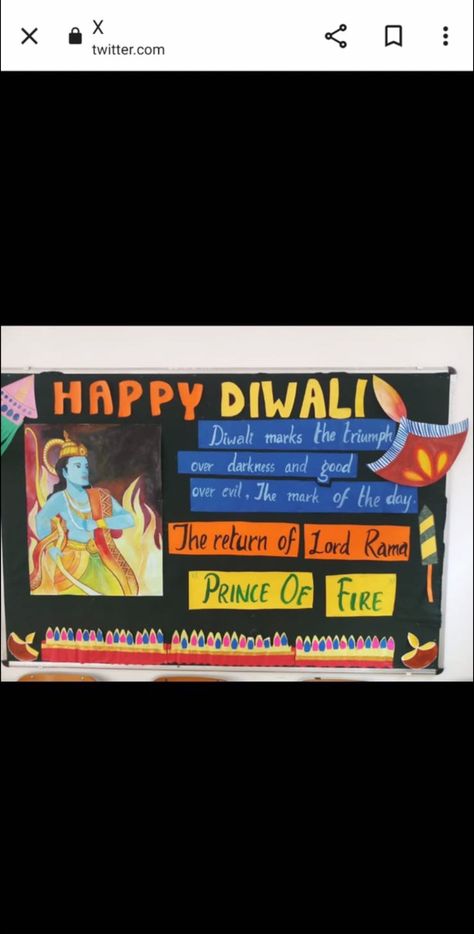 X
twitter.com
HAPPY DIWALI
Diwali marks the triumph
over darkness and good
over evil, The mark of the day.
The return of Lord Rama
"PRINCE OF FIRE